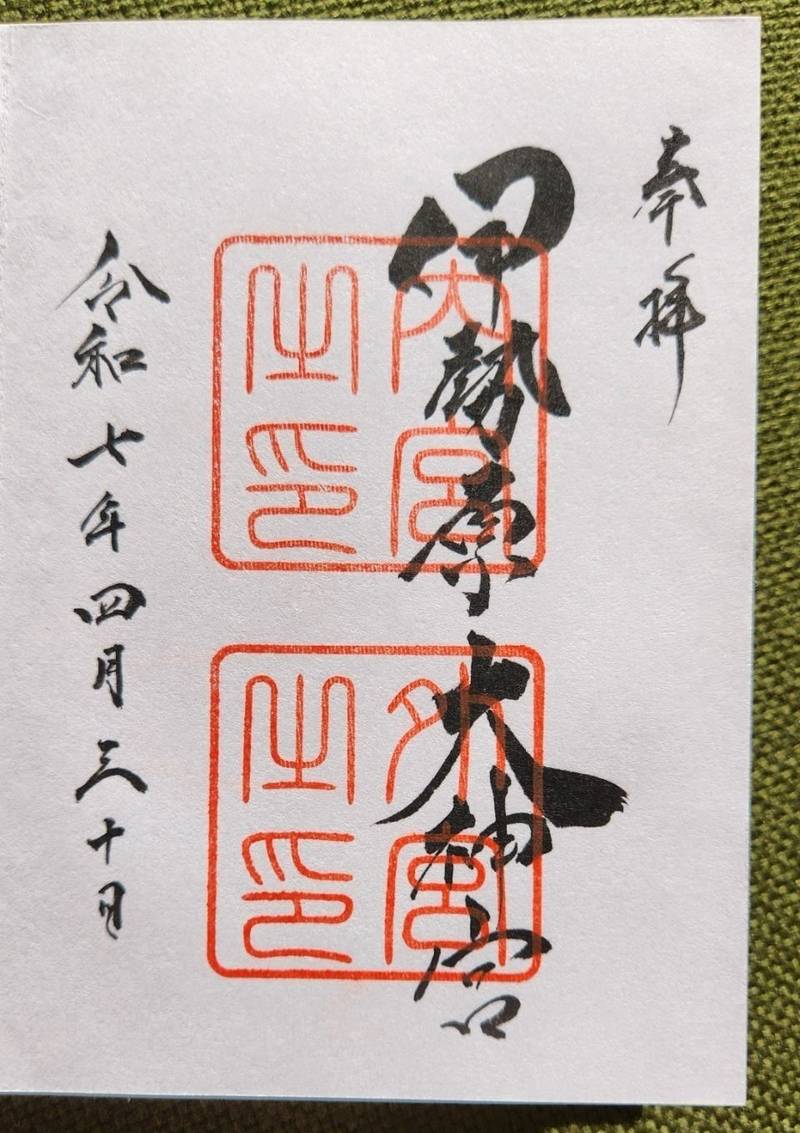 奉拝
伊勢原大神宮
内宮之印
外宮之印
令和七年四月三十日